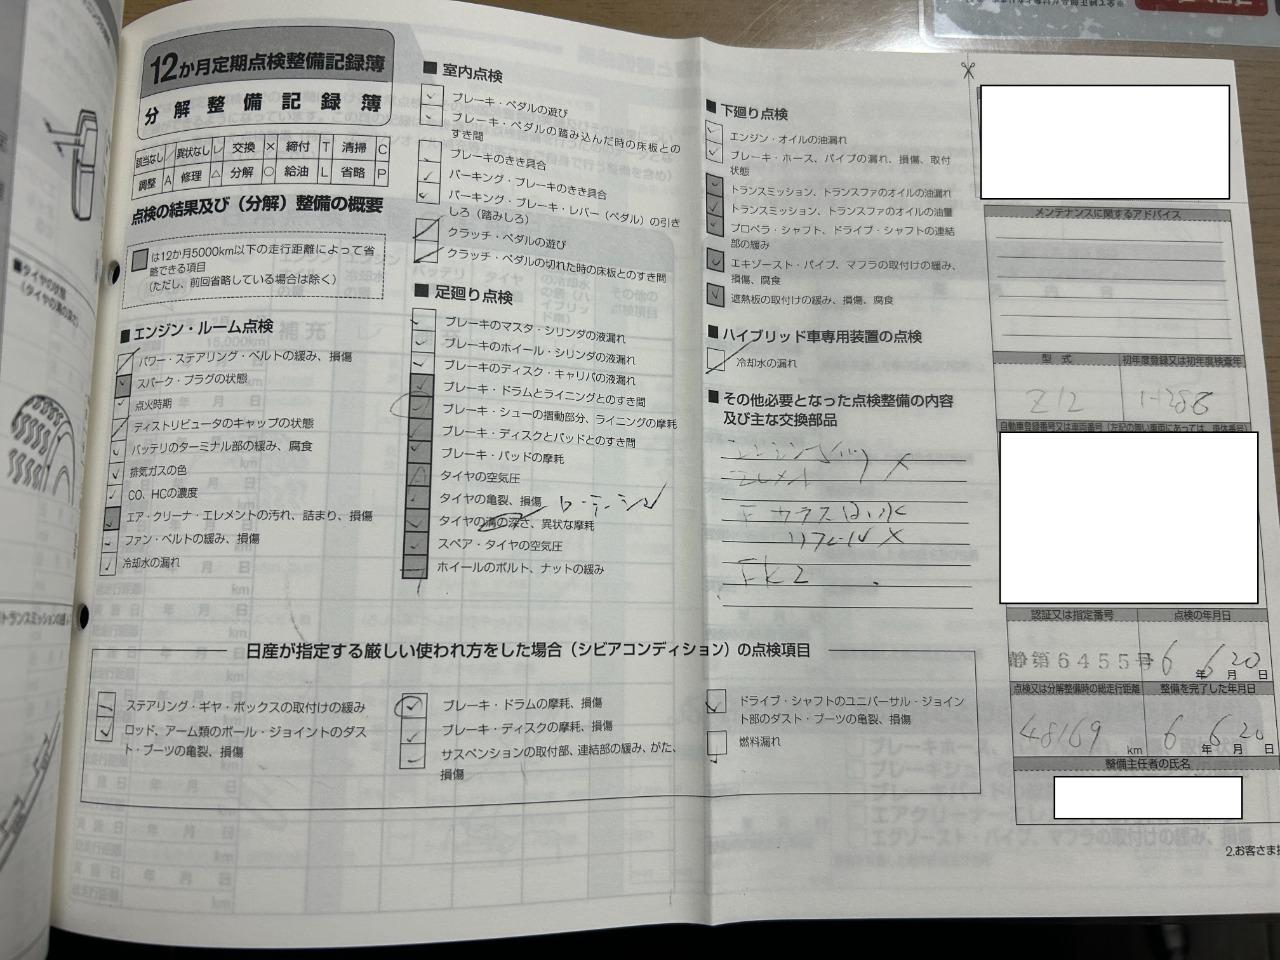 12か月定期点検整備記録簿
分解整備記録簿
該当なし / 異状なし レ 交換 × 締付 T 清掃 C
調整 A 修理 △ 分解 ○ 給油 L 省略 P
点検の結果及び(分解)整備の概要
は12か月5000km以下の走行距離によって省
略できる項目
(ただし、前回省略している場合は除く)
■エンジン・ルーム点検
パワー・ステアリング・ベルトの緩み、損傷
スパーク・プラグの状態
点火時期
ディストリビュータのキャップの状態
バッテリのターミナル部の緩み、腐食
排気ガスの色
CO、HCの濃度
エア・クリーナ・エレメントの汚れ、詰まり、損傷
ファン・ベルトの緩み、損傷
冷却水の漏れ
■室内点検
ブレーキ・ペダルの遊び
ブレーキ・ペダルの踏み込んだ時の床板との
すき間
ブレーキのきき具合
パーキング・ブレーキのきき具合
パーキング・ブレーキ・レバー(ペダル)の引き
しろ(踏みしろ)
クラッチ・ペダルの遊び
クラッチ・ペダルの切れた時の床板とのすき間
■足廻り点検
ブレーキのマスタ・シリンダの液漏れ
ブレーキのホイール・シリンダの液漏れ
ブレーキのディスク・キャリパの液漏れ
ブレーキ・ドラムとライニングとのすき間
ブレーキ・シューの摺動部分、ライニングの摩耗
ブレーキ・ディスクとパッドとのすき間
ブレーキ・パッドの摩耗
タイヤの空気圧
タイヤの亀裂、損傷 ローテーション
タイヤの溝の深さ、異状な摩耗
スペア・タイヤの空気圧
ホイールのボルト、ナットの緩み
■下廻り点検
エンジン・オイルの油漏れ
ブレーキ・ホース、パイプの漏れ、損傷、取付
状態
トランスミッション、トランスファのオイルの油漏れ
トランスミッション、トランスファのオイルの油量
プロペラ・シャフト、ドライブ・シャフトの連結
部の緩み
エキゾースト・パイプ、マフラの取付けの緩み、
損傷、腐食
遮熱板の取付けの緩み、損傷、腐食
■ハイブリッド車専用装置の点検
冷却水の漏れ
■その他必要となった点検整備の内容
及び主な交換部品
エレメント ×
F ガラスはっ水
リフィール ×
FK2
メンテナンスに関するアドバイス
型式 初年度登録又は初年度検査年
Z12 H28
自動車登録番号又は車両番号(左記の無い車両にあっては、車体番号)
認証又は指定番号 点検の年月日
静第6455号 6年6月20日
点検又は分解整備時の総走行距離 整備を完了した年月日
48169km 6年6月20日
整備主任者の氏名
日産が指定する厳しい使われ方をした場合(シビアコンディション)の点検項目
ステアリング・ギヤ・ボックスの取付けの緩み
ロッド、アーム類のボール・ジョイントのダス
ト・ブーツの亀裂、損傷
ブレーキ・ドラムの摩耗、損傷
ブレーキ・ディスクの摩耗、損傷
サスペンションの取付部、連結部の緩み、がた、
損傷
ドライブ・シャフトのユニバーサル・ジョイン
ト部のダスト・ブーツの亀裂、損傷
燃料漏れ
2.お客さま
■タイヤの状態
(タイヤの溝の深さ)